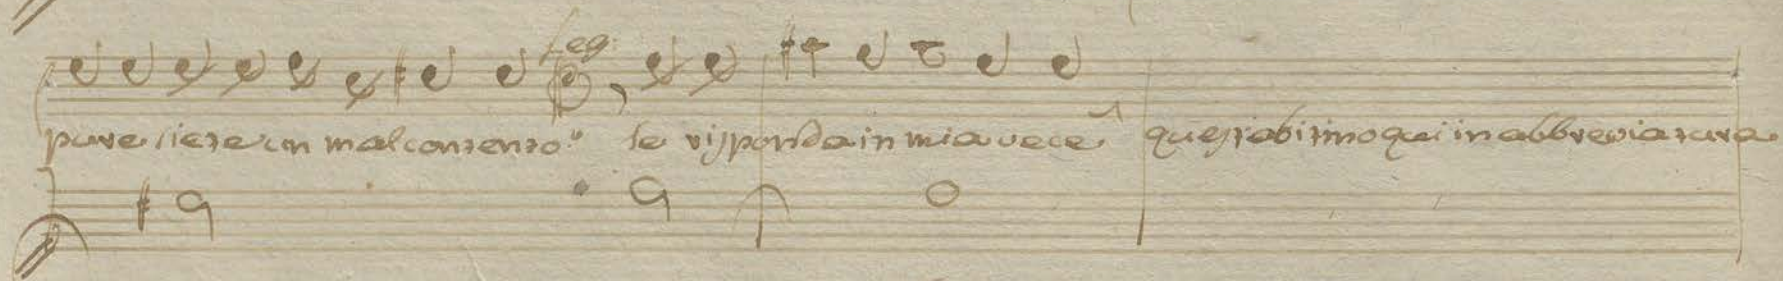 Leg:
pure siete un mal contento." le risponda in mia vece quest abitino qui in abbreviatura